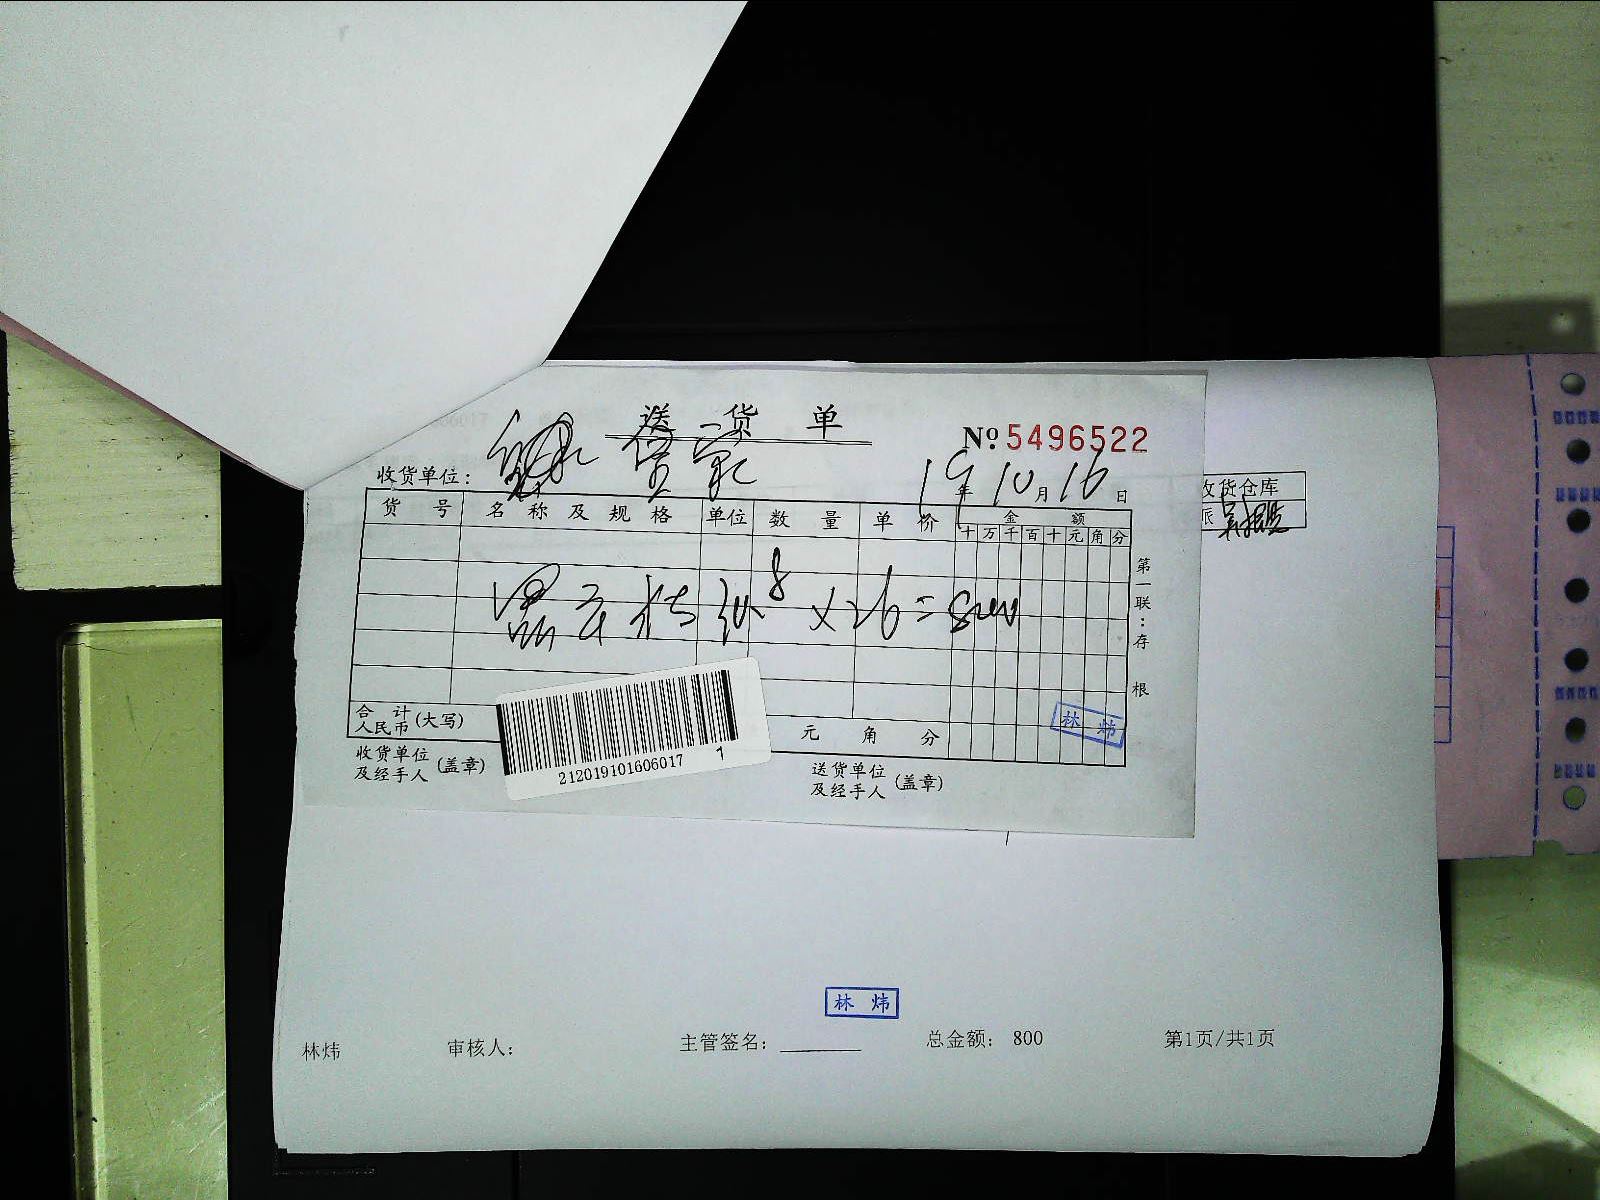 送货单
№ 5496522
收货单位：
19年10月16日
收货仓库
货号 名称及规格 单位 数量 单价 金额
十万千百十元角分
8 ×26=800
第一联：存根
合计人民币(大写) 元 角 分
林炜
收货单位及经手人(盖章)
送货单位及经手人(盖章)
212019101606017 1
林炜
林炜 审核人： 主管签名： 总金额： 800 第1页/共1页